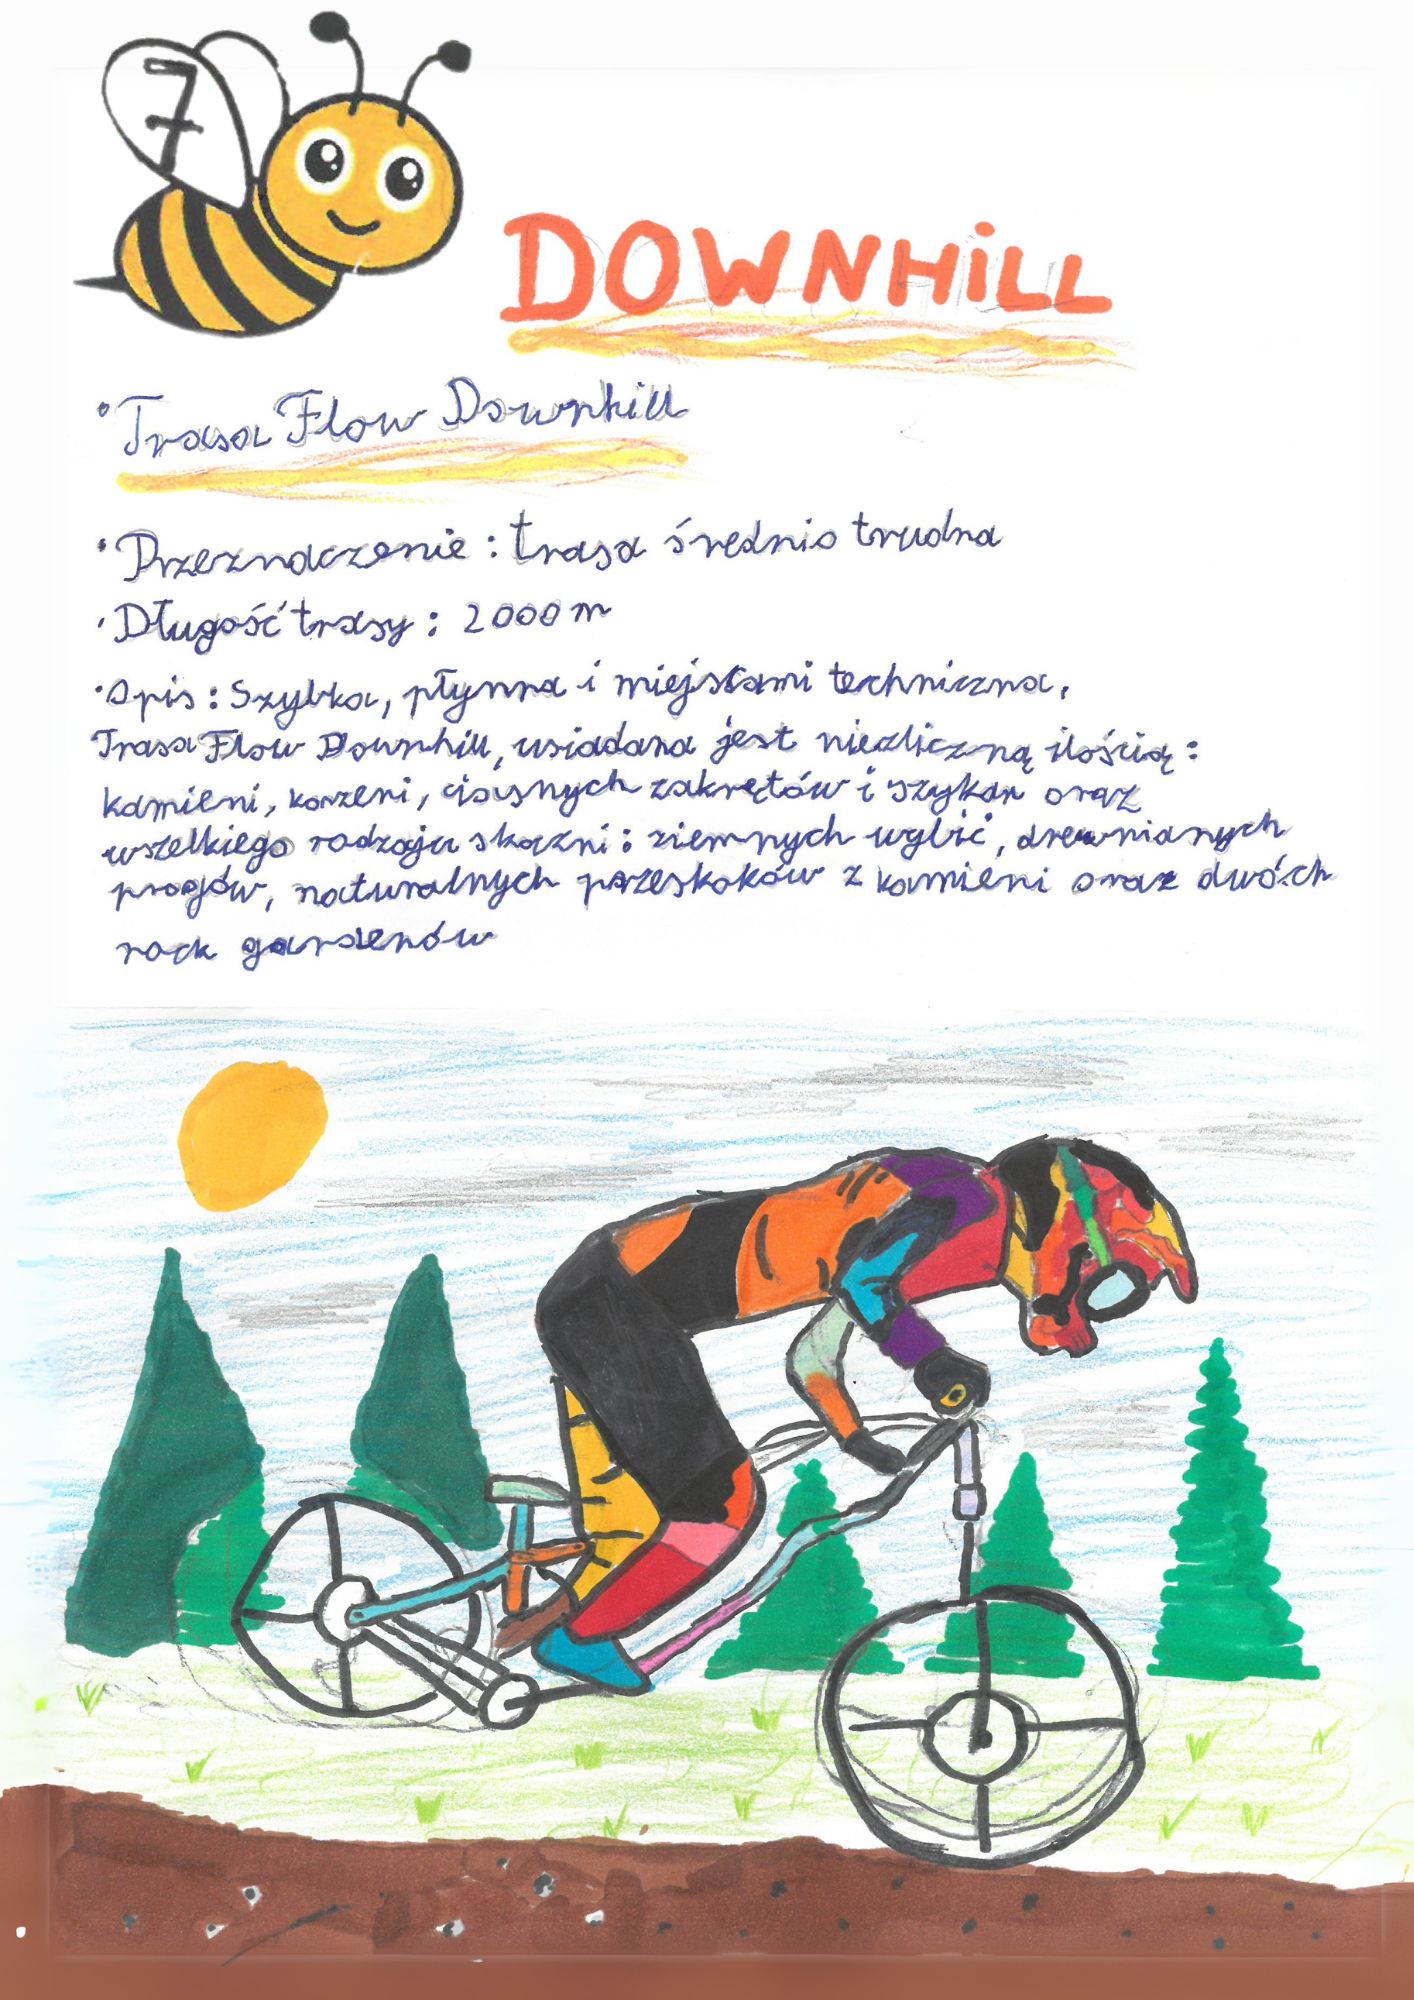 7
DOWNHiLL
• Trasa Flow Downhill
• Przeznaczenie : trasa średnio trudna
• Długość trasy : 2000 m
• Opis : Szybka, płynna i miejscami techniczna,
Trasa Flow Downhill, usiadana jest niezliczną ilością :
kamieni, korzeni, ciasnych zakrętów i szykan oraz
wszelkiego rodzaju skoczni : ziemnych wybić, drewnianych
progów, naturalnych przeskoków z kamieni oraz dwóch
rock gardenów